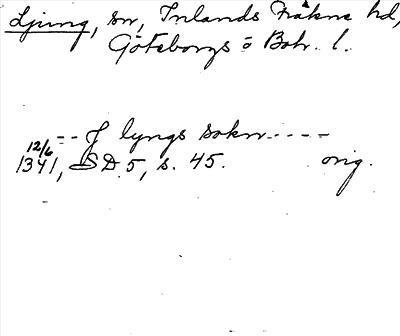 Ljung, sn, Inlands Fräkne hd,
Göteborgs o Boh. l.
-- J lyngs sokn ----
12/6
1341, SD 5, s. 45. orig.